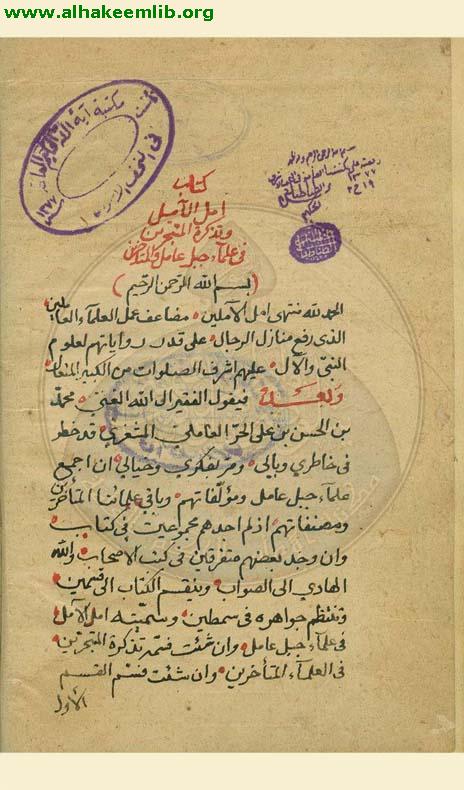 www.alhakeemlib.org
كتاب
امل الآمل
وتذكرة المتبحرين
في علماء جبل عامل والمتاخرين
(بسم الله الرحمن الرحيم)
الحمد لله منتهى امل الآملين مضاعف عمل العلماء العاملين
الذى رفع منازل الرجال على قدر رواياتهم لعلوم
النبى والآل عليهم اشرف الصلوات من الكبير المتعال
وبعد فيقول الفقير الى الله الغنى محمد
بن الحسن بن على الحر العاملى المشغرى قد خطر
فى خاطرى وبالى ومر بفكرى وخيالى ان اجمع
علماء جبل عامل ومؤلفاتهم وباقي علمائنا المتأخرين
ومصنفاتهم اذ لم اجدهم مجموعين فى كتاب
وان وجد بعضهم متفرقين فى كتب الاصحاب والله
الهادي الى الصواب وينقسم الكتاب الى قسمين
وتنتظم جواهره فى سمطين وسميته امل الآمل
فى علماء جبل عامل وان شئت فسمه تذكرة المتبحرين
فى العلماء المتأخرين وان شئت فسم القسم
الأول